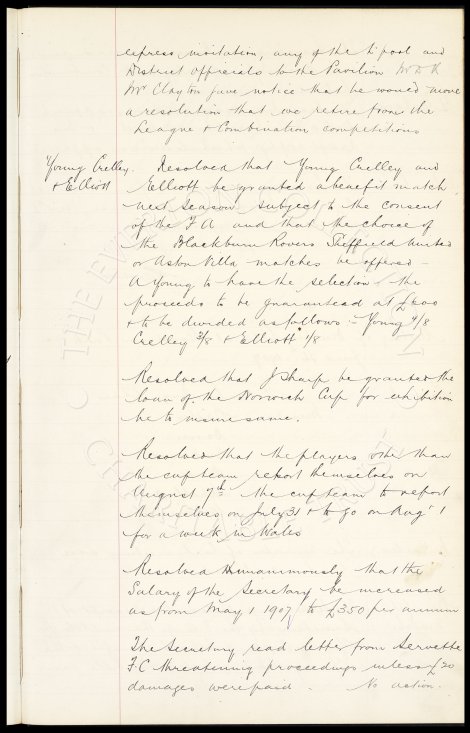 express invitation, any of the L'pool and
District officials to the Pavilion
Mr Clayton gave notice that he would move
a resolution that we retire from the
League & Combination competitions
Young Crelley.
& Elliott
Resolved that Young Crelley and
Elliott be granted a benefit match
next season subject to the consent
of the F A and that the choice of
the Blackburn Rovers Sheffield United
or Aston Villa matches be offered –
A Young to have the selection the
proceeds to be guaranteed at £600
& to be divided as follows :– Young 4/8
Crelley 3/8 & Elliott 1/8
Resolved that J Sharp be granted the
loan of the Norwich Cup for exhibition
he to insure same.
Resolved that the players other than
the cup team report themselves on
August 7th the cup team to report
themselves on July 31 & to go on Aug 1
for a week in Wales
Resolved unanimously that the
Salary of the Secretary be increased
as from May 1 1907 to £350 per annum
The Secretary read letter from Servette
F.C threatening proceedings unless £20
damages were paid. No action.